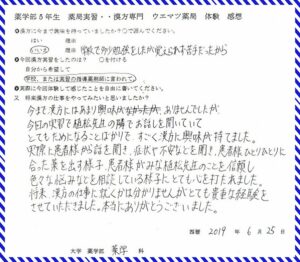 薬学部5年生 薬局実習・・漢方専門 ウエマツ薬局 体験 感想
●漢方に今まで興味を持っていましたか？○で選んでください。
はい 理由
いいえ 理由 学校で少し勉強をしたが覚えられず苦手だったから
●今回漢方実習をしたのは？ ○を付ける
自分から希望して
学校、または実習の指導薬剤師に言われて。
●実際に今回体験して感じたことを自由に書いてください。
又 将来漢方の仕事をやってみたいと思いましたか？
今まで漢方にはあまり興味がなかったが、
今回の実習で植松先生の隣でお話しを聞いていて
とてもためになることばかりで、すごく漢方に興味が持てました。
実際に患者様から話を聞き、症状や不安なことを聞き、患者様ひとりひとりに
合った薬を出す様子、患者様がみな植松先生のことを信頼し
色々な悩みなどを相談している様子にとても心を打たれました。
将来、漢方の仕事に就くかは分かりませんがとても貴重な経験を
させていただきました。本当にありがとうございました。
西暦 2019 年 6 月 25 日
大学 薬学部 薬学 科